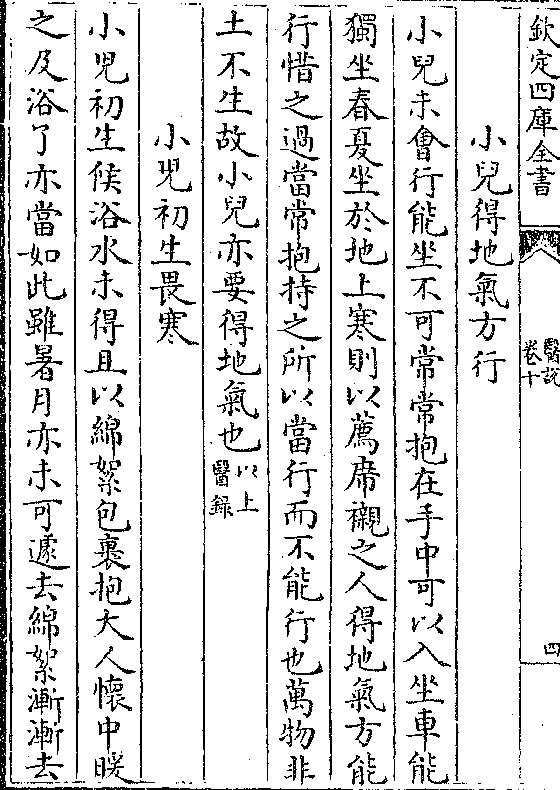 欽定四庫全書
醫說
卷十
四
小兒得地氣方行
小兒未會行能坐不可常常抱在手中可以入坐車能
獨坐春夏坐於地上寒則以薦席襯之人得地氣方能
行惜之過當常抱持之所以當行而不能行也萬物非
土不生故小兒亦要得地氣也以上醫錄
小兒初生畏寒
小兒初生候浴水未得且以綿絮包裹抱大人懷中暖
之及浴了亦當如此雖暑月亦未可遽去綿絮漸漸去